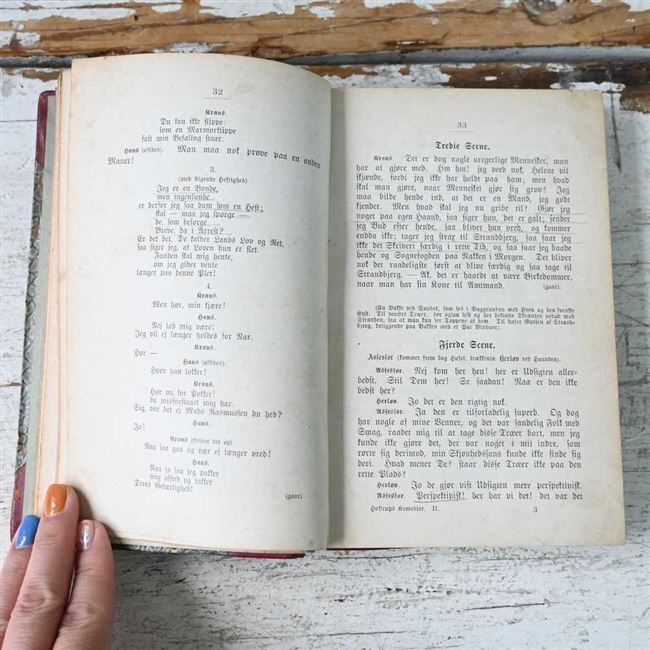 32
Krans.
Du kan ikke slippe:
som en Marmorklippe
fast min Befaling staar.
Hans (afsides). Man maa nok prøve paa en anden
Maner!
3.
(med stigende Heftighed)
Jeg er en Bonde,
men ingenlunde
er derfor jeg saa dum som en Hest;
skal — maa jeg spørge —
de, som besørge
Breve, da i Arrest?
Er det det, De kalder Lands Lov og Ret,
saa siger jeg, at Loven hun er slet.
Fanden skal mig hente,
om jeg gider vente
længer paa denne Plet!
4.
Krans.
Men hør, min kjære!
Hans.
Nej lad mig være!
Jeg vil ej længer holdes for Nar.
Krans.
Hør —
Hans (afsides).
Hvor han lokker!
Krans.
Hør nu for Pokker!
du misforstaaet mig har.
Sig, var det ej Mads Rasmussen du hed?
Hans.
Jo!
Krans (skriver det op).
Naa saa gaa og vær ej længer vred!
Hans.
Naa ja saa jeg pakker
mig afsted og takker
Deres Gefærlighed!
(gaar)
33
Tredie Scene.
Krans. Det er dog nogle urgerlige Mennesker, man
har at gjøre med. Hm hm! jeg ved nok, Helene vil
skjænde, fordi jeg ikke har holdt paa ham; men hvad
skal man gjøre, naar Mennesket gjør sig grov? Jeg
maa bilde hende ind, at det er en Mand, jeg godt
kjender. Men hvad skal jeg nu gribe til? Gjør jeg
noget paa egen Haand, saa siger hun, det er galt; sender
jeg Bud efter hende, saa bliver hun vred, og kommer
endda ikke; tager jeg strax til Strandbjerg, saa faar jeg
ikke det Skriveri færdig i rette Tid, og saa har jeg baade
hende og Sognefogden paa Nakken i Morgen. Det bliver
nok det raadeligste først at blive færdig og saa tage til
Strandbjerg. — Ak, det er haardt at være Birkedommer,
naar man har sin Kone til Amtmand.
(gaar)
(En Bakke ved Sundet, som ses i Baggrunden med Hven og den svenske
Kyst. Til venstre Træer, der tildels skjule og det beklade Skrænten nedad mod
Stranden, saa at man kun ser Toppene af dem. Til højre Gavlen af Strand-
bjerg, beliggende paa Bakken med et Par Vinduer).
Fjerde Scene.
Assessor (kommer frem bag Huset, trækkende Herløv ved Haanden).
Assessor. Nej kom her hen! her er Udsigten aller-
bedst. Stil Dem her! Se saadan! Naa er den ikke
bedst her?
Herløv. Jo det er den rigtig nok.
Assessor. Ja den er tilforladelig superb. Og dog
har nogle af mine Venner, og det var sandelig Folk med
Smag, raadet mig til at tage disse Træer bort, men jeg
kunde ikke gjøre det, der var noget i mit indre, som
rørte sig derimod, min Skjønhedssans kunde ikke finde sig
deri. Hvad mener De? staar disse Træer ikke paa den
rette Plads?
Herløv. Jo de gjør vist Udsigten mere perspektivisk.
Assessor. Perspektivisk! der har vi det! det var det
Hostrups Komedier. II. 3